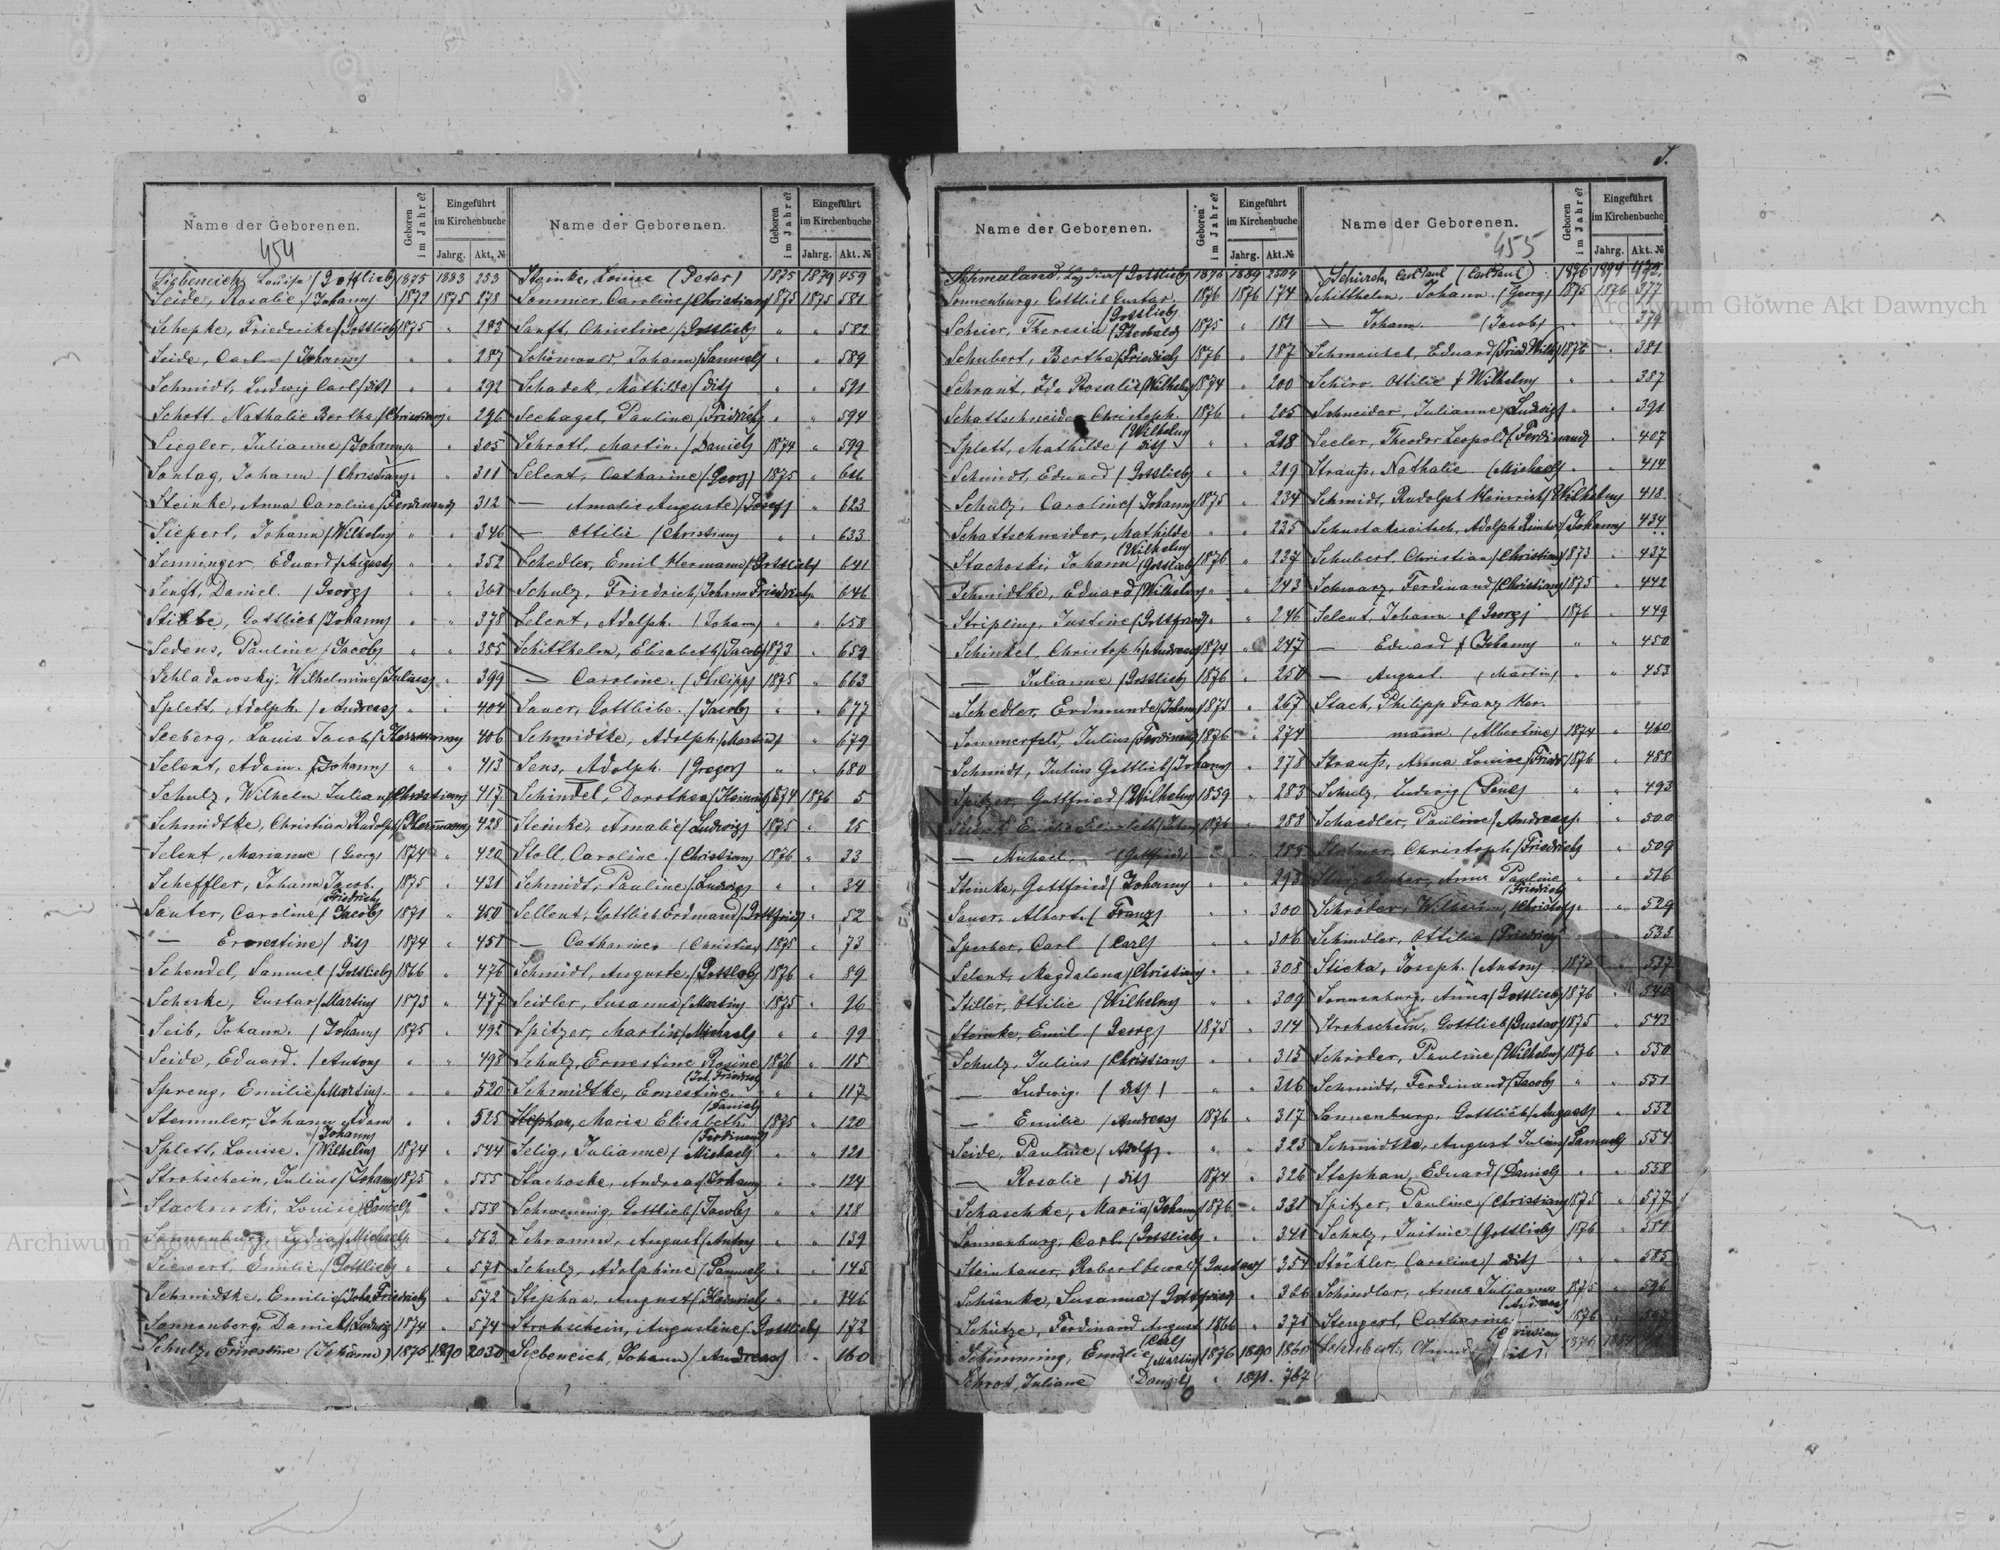 S.
Name der Geborenen.
Geboren im Jahre?
Eingeführt im Kirchenbuche
Jahrg. Akt. №
Name der Geborenen.
Geboren im Jahre?
Eingeführt im Kirchenbuche
Jahrg. Akt. №
454
Siebeneich, Louise (Gottlieb) 1875 1883 253
Seide, Rosalie (Johann) 1872 1875 278
Schepke, Friederike (Gottlieb) 1875 " 283
Seide, Carl (Johann) " " 287
Schmidt, Ludwig Carl (dit) " " 292
Schott Nathalie Bertha (Christian) " 296
Siegler, Julianne (Johann) " 305
Sontag, Johann (Christian) " " 311
Steinke, Anna Caroline (Ferdinand) 312
Siepert, Johann (Wilhelm) " " 346
Senninger Eduard (August) " " 352
Senft, Daniel. (Georg) " " 361
Gottlieb (Johann) " " 378
Sedens, Pauline (Jacob) " " 385
Schladowsky, Wilhelmine (Julius) " 399
Splett, Adolph. (Andreas) " " 404
Seeberg, Louis Jacob (Herrmann) 406
Selent, Adam. (Johann) " " 413
Schulz, Wilhelm Julian (Christian) 417
Schmidtke, Christian Rudolph (Herrmann) 428
Selent, Marianne (Georg) 1874 " 420
Scheffler, Johann Jacob. 1875 " 421
(Friedrich)
Sauter, Caroline (Jacob) 1871 " 450
— Ernestine (dit) 1874 " 451
Schendel, Samuel (Gottlieb) 1866 " 476
Scheske, Gustav (Martin) 1873 " 477
Seib, Johann. (Johann) 1875 " 492
Seide, Eduard. (Anton) " " 498
Spreng, Emilie (Martin) " " 520
Stemmler, Johann Adam " " 525
(Johann)
Splett, Louise. (Wilhelm) 1874 " 544
Strohschein, Julius (Johann) 1875 " 555
Louise (Daniel) " 558
Sonnenburg, Lydia (Michael) " 563
Siewert, Emilie (Gottlieb) " " 571
Schmidtke, Emilie (Joh. Friedrich) " 572
Sonnenberg, Daniel (Ludwig) 1874 " 574
Schulz, Ernestine (Johann) 1875 1890 2030
Steinke, Louise (Peter) 1875 1879 459
Sommer, Caroline (Christian) 1875 1875 581
Sanft, Christine (Gottlieb) " " 582
Schönwald Johann (Samuel) " " 589
Schadek, Mathilde (dit) " " 591
Seehagel, Pauline (Friedrich) " " 594
Schrott, Martin. (Daniel) 1874 " 599
Selent, Catharine (Georg) 1875 " 616
— Amalie Auguste (Josef) " 623
— Ottilie (Christian) " " 633
Schedler, Emil Hermann (Gottlieb) 641
Schulz, Friedrich (Johann Friedrich) 646
Selent, Adolph. (Johann) " " 658
Schitthelm, Elisabeth (Jacob) 1873 " 659
— Caroline. (Philipp) 1875 " 663
Sauer, Gottliebe. (Jacob) " " 677
Schmidtke, Adolph. (Martin) " " 679
Sens, Adolph. (Gregor) " " 680
Schindel, Dorothea (Heinrich) 1874 1876 5
Steinke, Amalie (Ludwig) 1875 " 25
Stoll, Caroline. (Christian) 1876 " 33
Schmidt, Pauline (Ludwig) " " 34
Sellent, Gottlieb Erdmann (Gottfried) " 52
— Catharine (Christian) 1875 " 73
Schmidt, Auguste. (Gottlob) 1876 " 89
Seidler, Susanna (Martin) 1875 " 96
Spitzer, Martin (Michael) " " 99
Schulz, Ernestine Rosine 1876 " 115
(Joh. Friedrich)
Schmidtke, Ernestine " " 117
(Daniel)
Stephan, Maria Elisabeth 1875 " 120
(Ferdinand)
Selig, Julianne (Michael) " " 121
Stachoske, Andreas (Johann) " " 124
Schwennig, Gottlieb (Jacob) " " 128
Schramm, August (Anton) " " 139
Schulz, Adolphine (Samuel) " " 145
Stephan, August (Heinrich) " " 146
Strohschein, Augustine (Gottlieb) 172
Siebeneich, Johann (Andreas) " 160
Name der Geborenen.
Geboren im Jahre?
Eingeführt im Kirchenbuche
Jahrg. Akt. №
Name der Geborenen.
Geboren im Jahre?
Eingeführt im Kirchenbuche
Jahrg. Akt. №
455
(Gottlieb) 1876 1889 2504
Sonnenburg, Gottlieb Gustav 1876 1876 174
(Gottlieb)
Scheier, Theresia (Theobald) 1875 " 181
Schubert, Bertha (Friedrich) 1876 " 187
Schrant, Ida Rosalie (Wilhelm) 1874 " 200
Schattschneider Christoph. 1876 " 205
(Wilhelm)
Splett, Mathilde (dit) " " 218
Schmidt, Eduard (Gottlieb) " " 219
Schulz, Caroline (Johann) 1875 " 234
Schattschneider, Mathilde " " 235
(Wilhelm)
Stachoski, Johann (Gottlieb) 1876 " 237
Schmidtke, Eduard (Wilhelm) " " 243
Stripling, Justine (Gottfried) " " 246
Schinkel, Christoph (Andreas) 1874 " 247
— Julianne (Gottlieb) 1876 " 250
Schedler, Erdmunde (Johann) 1875 " 267
Sommerfeld, Julius (Ferdinand) 1876 " 274
Schmidt, Julius Gottlieb (Johann) " 278
Spitzer, Gottfried (Wilhelm) 1859 " 283
1876 " 288
— Michael, (Gottfried) " " 289
Steinke, Gottfried (Johann) " " 295
Sauer, Albert. (Franz) " " 300
Sperber, Carl (Carl) " " 306
Selent, Magdalena (Christian) " " 308
Stiller, Ottilie (Wilhelm) " " 309
Steinke, Emil (Georg) 1875 " 314
Schulz, Julius (Christian) " " 315
— Ludwig. (dit) " " 316
— Emilie (Andreas) 1876 " 317
Seide, Pauline (Adolf) " " 323
— Rosalie (dit) 1874 " 326
Schaschke, Maria (Johann) 1876 " 331
Sonnenburg, Carl (Gottlieb) " " 341
Steinhauer, Robert (Gustav) 354
Schünke, Susanna (Gottfried) " 366
Schütze, Ferdinand August 1866 " 371
(Carl)
Schimming, Emilie 1876 1890 1860
(Martin)
Schrot, Juliane Daniel " 1891. 767
Schürch, Carl Paul (Carl Paul) 1876 1894 472
Schitthelm, Johann. (Georg) 1875 1876 377
— Johann. (Jacob) " " 379
Schmeichel, Eduard (Fried. Wilh.) 1876 " 381
Schiro, Ottilie (Wilhelm) " " 387
Schneider, Julianne (Ludwig) " " 391
Seeler, Theodor Leopold (Ferdinand) " 407
Strauß, Nathalie (Michael) " " 414
Schmidt, Rudolph Heinrich (Wilhelm) 418
Adolph (Johann) 434
Schubert, Christian (Christian) 1873 " 437
Schwarz, Ferdinand (Christian) 1875 " 442
Selent, Johann (Georg) 1876 " 449
— Eduard (Johann) " " 450
— August. (Martin) " " 453
Stach, Philipp Franz Her-
mann (Albertine) 1874 " 460
Strauß, Anna Louise (Friedr.) 1876 " 488
Schulz, Ludwig (Paul) " " 493
Schaedler, Pauline (Andreas) " 500
Christoph (Friedrich) " 509
Anna Pauline " 516
(Friedrich)
Schröder, (Christof) " " 529
Schindler, Ottilie (Friedrich) " 533
Sticka, Joseph. (Anton) 1875 " 537
Sonnenburg, Anna (Gottlieb) 1876 " 540
Strohschein, Gottlieb (Gustav) 1875 " 543
Schröder, Pauline (Wilhelm) 1876 " 550
Schmidt, Ferdinand (Jacob) " " 551
Sonnenburg, Gottlieb (August) " 552
Schmidtke, August Julius (Samuel) 554
Stephan, Eduard (Daniel) " " 558
Spitzer, Pauline (Christian) 1875 " 577
Schulz, Justine (Gottlieb) 1876 " 581
Stöckler, Caroline (dit) " " 585
Schindler, Anna Julianne 1875 " 596
(Andreas)
Stengert, Catharine 1876 "
(Christian)
Schubert, 1876
Archiwum Główne Akt Dawnych
Archiwum Główne Akt Dawnych